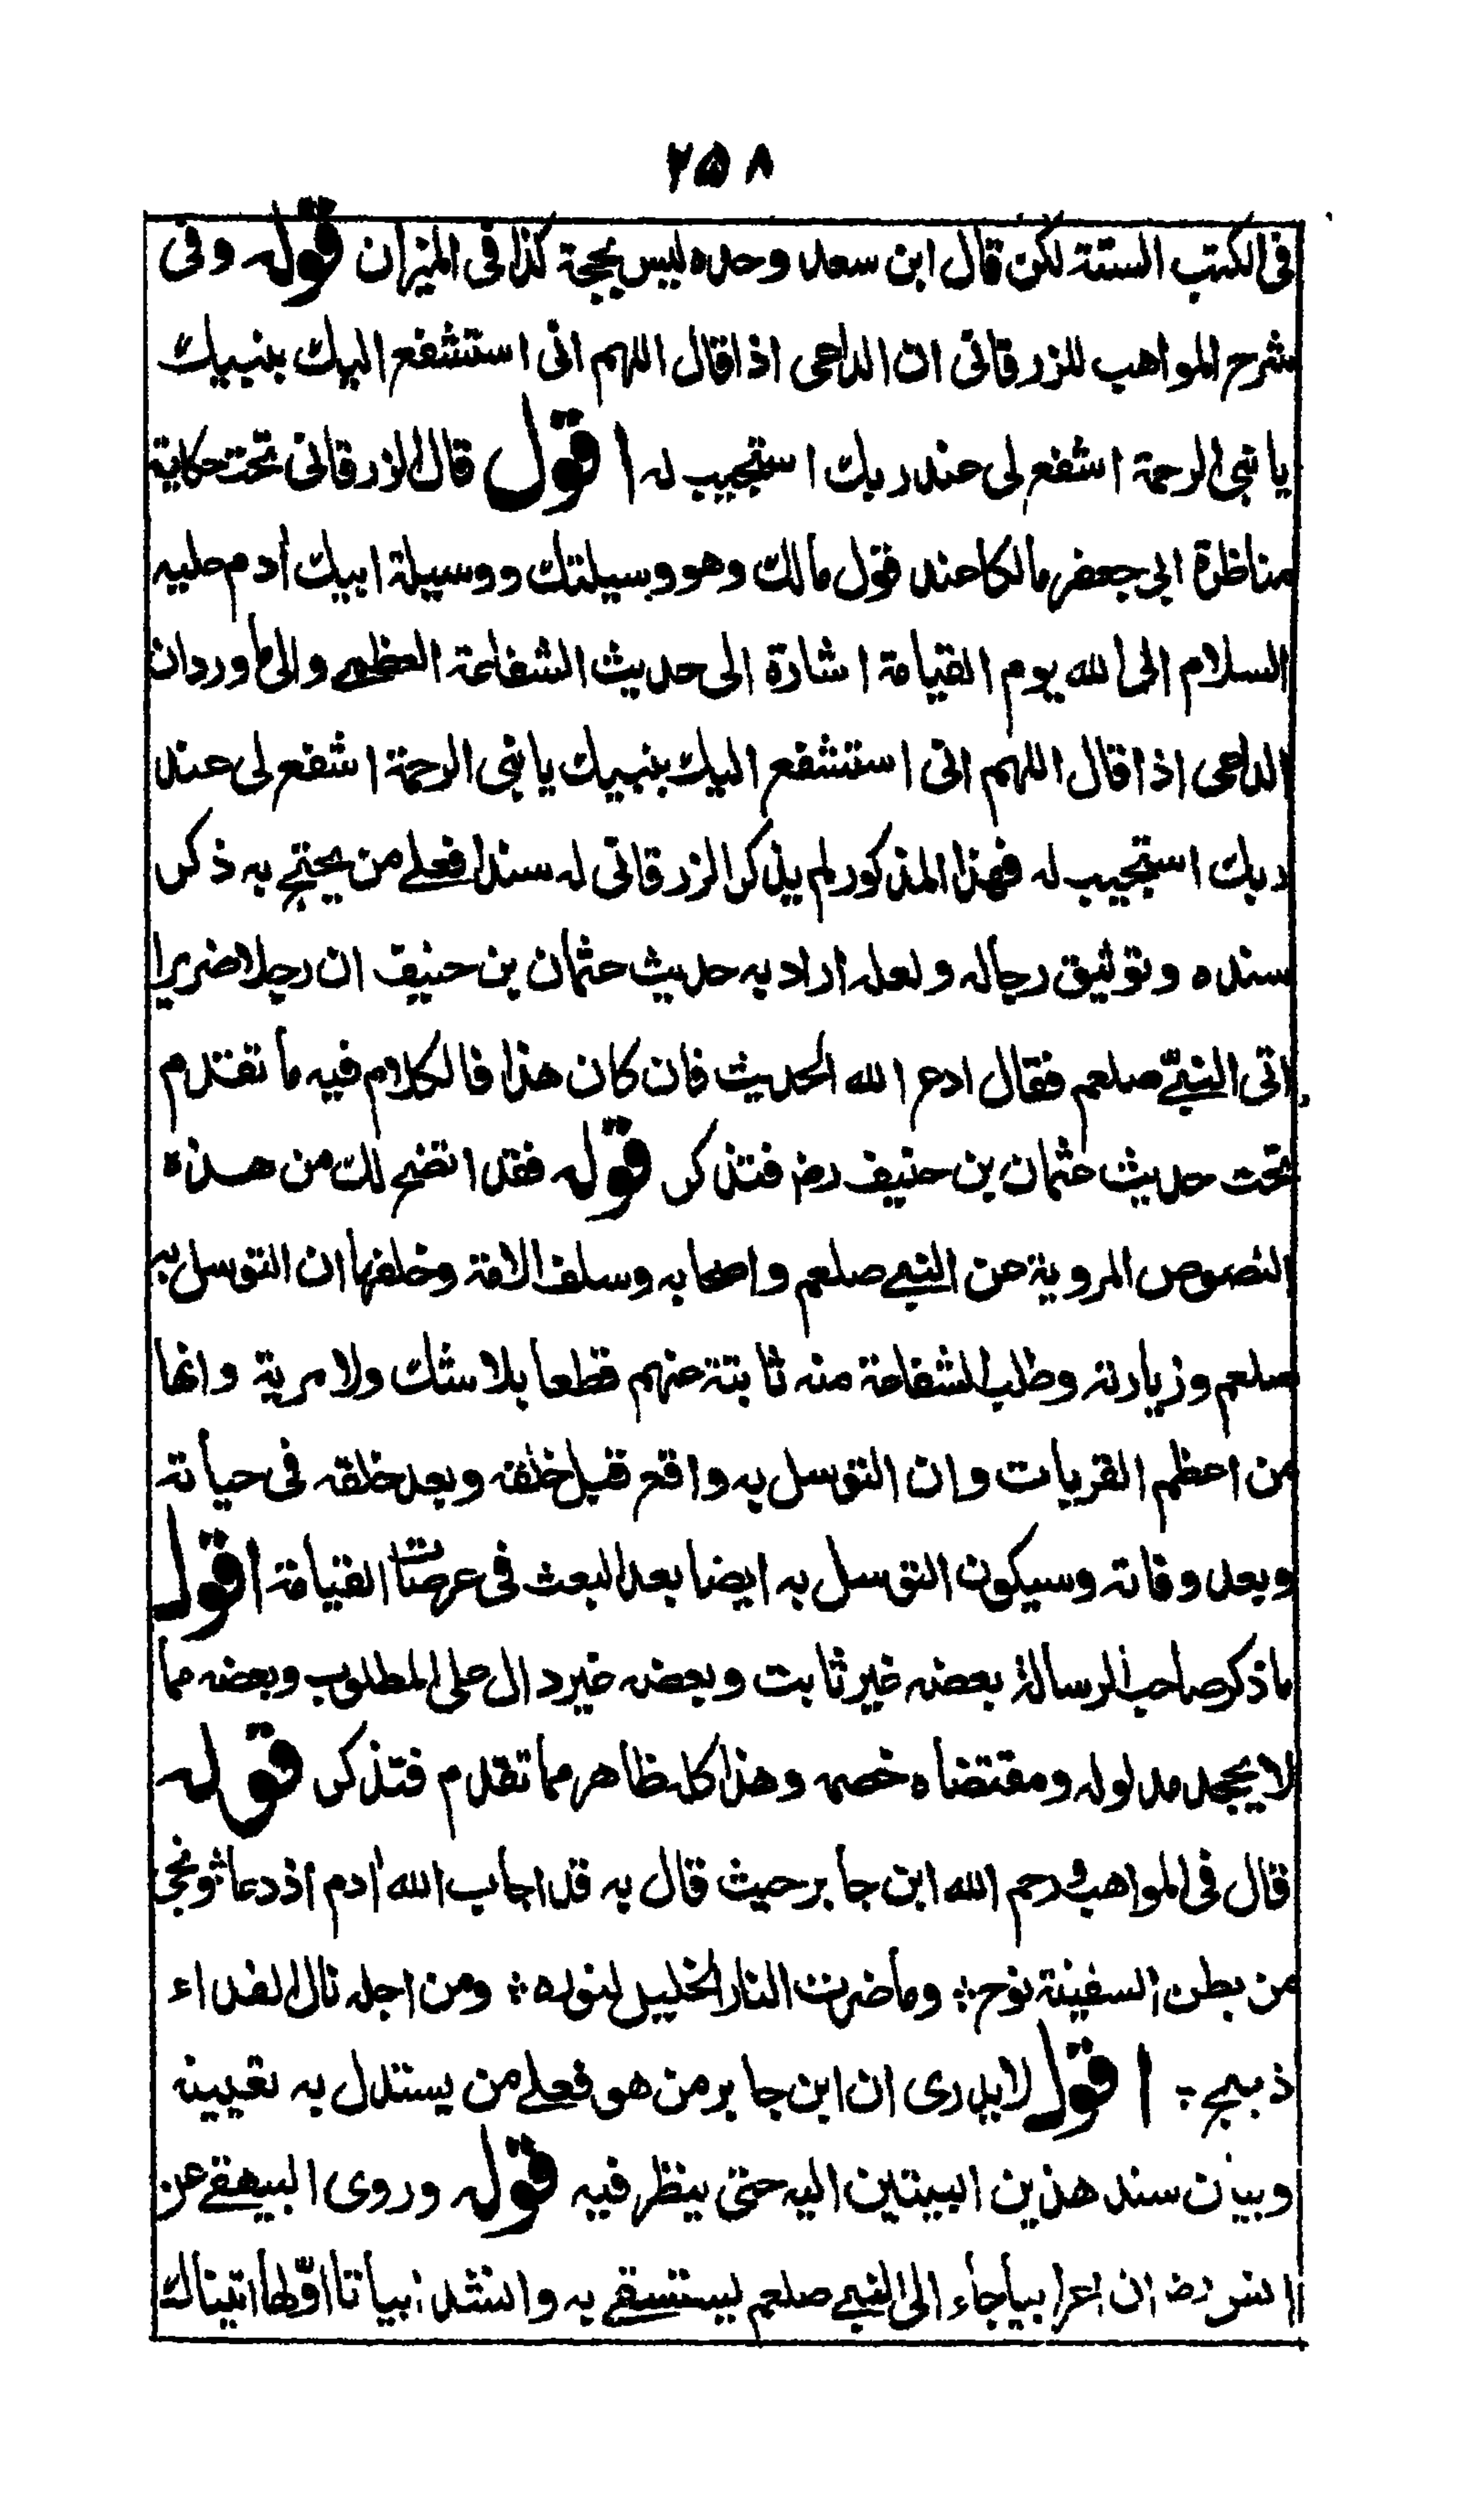 ۲۵۸
فی الکتب الستة لکن قال ابن سعد وحده لیس بحجة کذا فی المیزان قوله وفی
شرح المواهب للزرقانی ان الداعی اذا قال اللهم انی استشفع الیك بنبیك
یا نبی الرحمة اشفع لی عند ربك استجیب له اقول قال الزرقانی تحت حکایة
مناظرة ابی جعفر مالکا عند قول مالك وهو وسیلتك ووسیلة ابیك اٰدم علیه
السلام الی الله یوم القیامة اشارة الی حدیث الشفاعة العظمی والی ما ورد ان
الداعی اذا قال اللهم انی استشفع الیك بنبیك یا نبی الرحمة اشفع لی عند
ربك استجیب له فهذا المذکور لم یذکر الزرقانی له سندا فعلی من یحتج به ذکر
سنده وتوثیق رجاله ولعله اراد به حدیث عثمان بن حنیف ان رجلا ضریرا
اتی النبیّ صلعم فقال ادع الله الحدیث فان کان هذا فالکلام فیه ما تقدم
تحت حدیث عثمان بن حنیف رض فتذکر قوله فقد اتضح لك من هذه
النصوص المرویة عن النبی صلعم واصحابه وسلف الامة وخلفها ان التوسل به
صلعم وزیارته وطلب الشفاعة منه ثابتة عنهم قطعا بلا شك ولا مریة وانها
من اعظم القربات وان التوسل به واقع قبل خلقه وبعد خلقه فی حیاته
وبعد وفاته وسیکون التوسل به ایضا بعد البعث فی عرصات القیامة اقول
ما ذکر صاحب الرسالة بعضه غیر ثابت وبعضه غیر دال علی المطلوب وبعضه مما
لا یجحد مدلوله ومقتضاه خصمه وهذا کله ظاهر مما تقدم فتذکر قوله
قال فی المواهب ورحم الله ابن جابر حیث قال به قد اجاب الله اٰدم اذ دعا ؛ ونجی
من بطن السفینة نوح ؛ وما ضرت النار الخلیل لنوره ؛ ومن اجله نال الفداء
ذبیح ؛ اقول لا یدری ان ابن جابر من هو فعلی من یستدل به تعیینه
وبیان سند هذین البیتین الیه حتی ینظر فیه قوله وروی البیهقی عن
انس رض ان اعرابیا جاء الی النبی صلعم یستسقی به وانشد ابیاتا اوّلها اتیناك